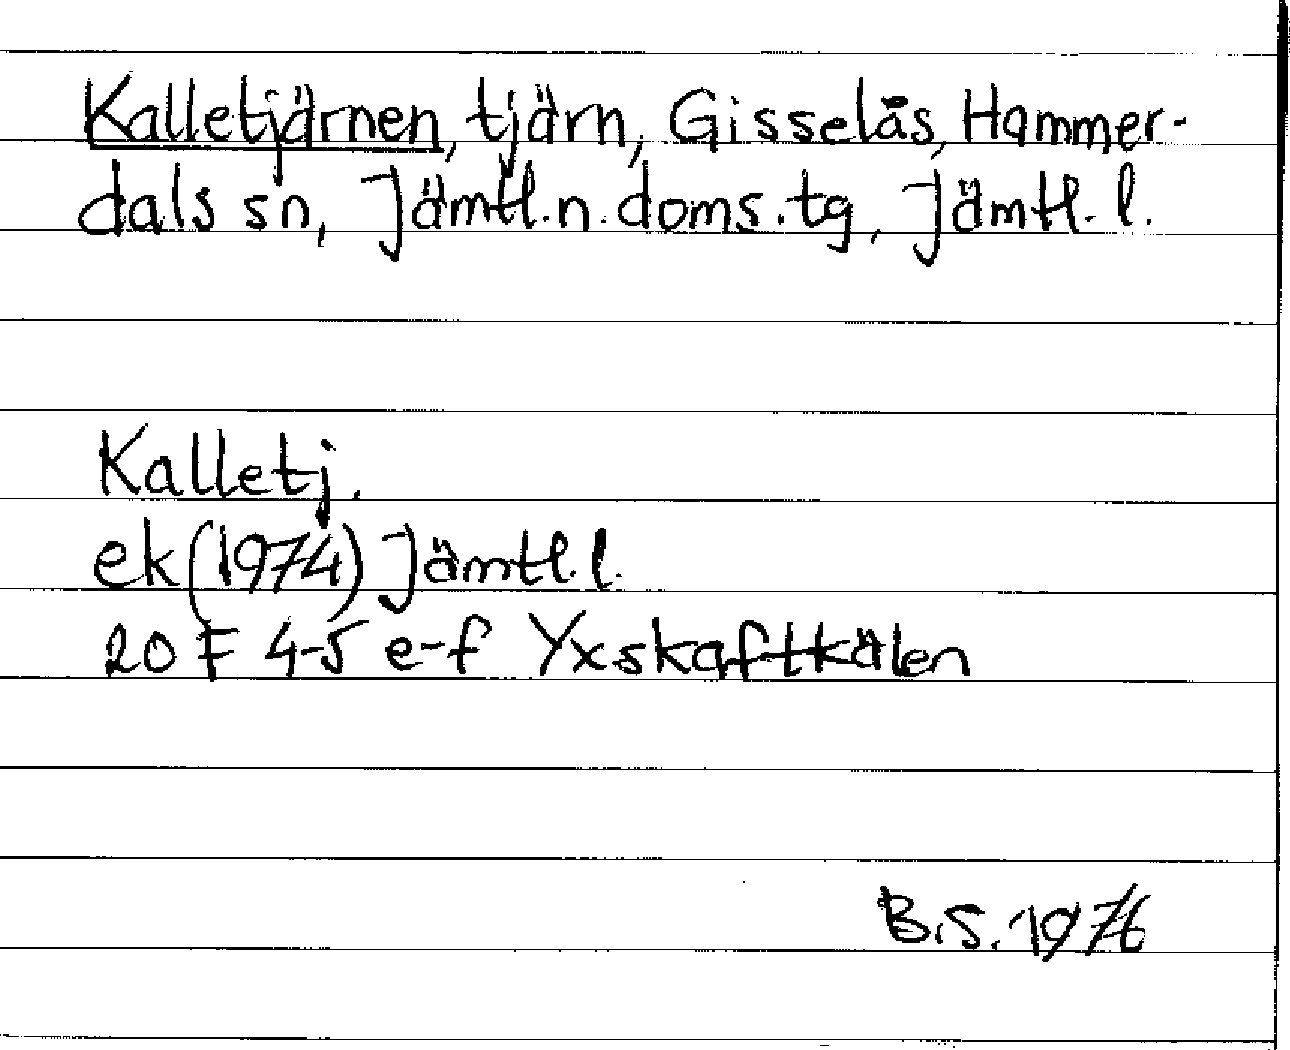 Kalletjärnen, tjärn, Gisselås, Hammer-
dals sn, Jämtl.n.doms.tg, Jämtl.l.
Kalletj.
ek (1974) Jämtl.l.
20 F 4-5 e-f Yxskaftkälen
B.S. 1976